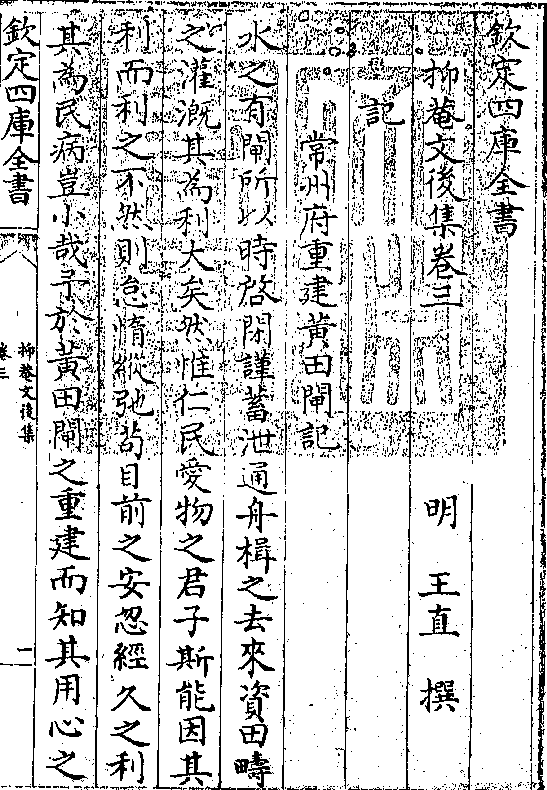 欽定四庫全書
抑菴文後集卷三
明 王直 撰
記
常州府重建黄田閘記
水之有閘所以時啓閉謹蓄泄通舟楫之去來資田疇
之灌溉其為利大矣然惟仁民愛物之君子斯能因其
利而利之不然則怠惰縱弛茍目前之安忽經久之利
其為民病豈小哉予於黄田閘之重建而知其用心之
欽定四庫全書
抑菴文後集
卷三
一